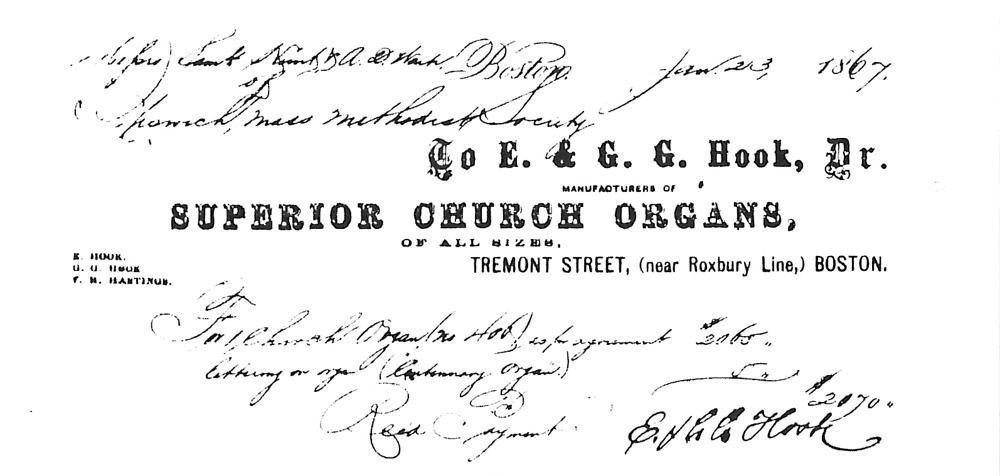 Boston, Jan. 23, 1867.
of
Ipswich, Mass Methodist Society
To E. & G. G. Hook, Dr.
MANUFACTURERS OF
SUPERIOR CHURCH ORGANS,
OF ALL SIZES,
E. HOOK.
G. G. HOOK
F. H. HASTINGS.
TREMONT STREET, (near Roxbury Line,) BOSTON.
For 1 Church Organ (no 406) as per agreement $2065 "
lettering on orgn (Centennary Organ.) 5 "
$2070 "
Recd Payment
E. & G. G. Hook